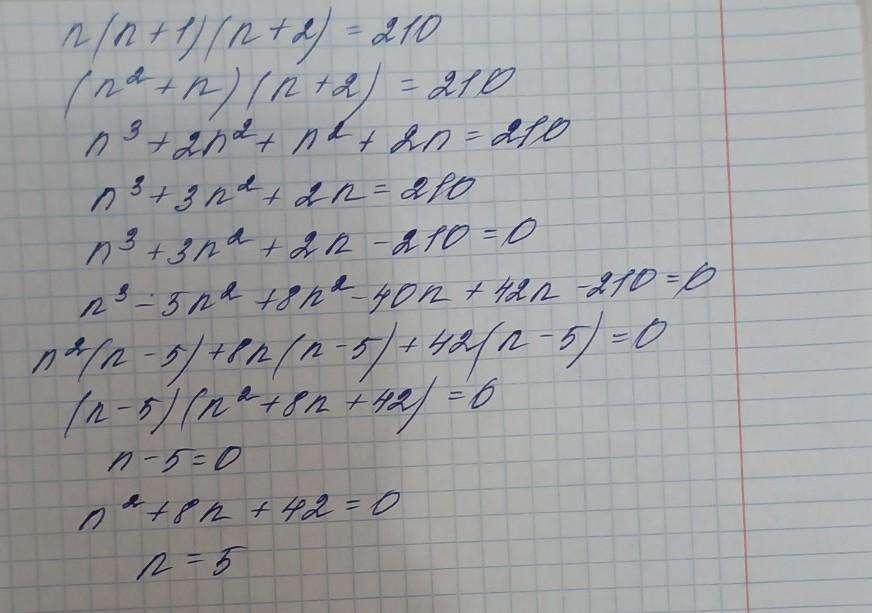 n(n+1)(n+2) = 210
(n²+n)(n+2) = 210
n³+2n²+n²+2n=210
n³+3n²+2n=210
n³+3n²+2n-210=0
n³-5n²+8n²-40n+42n-210=0
n²(n-5)+8n(n-5)+42(n-5)=0
(n-5)(n²+8n+42)=0
n-5=0
n²+8n+42=0
n=5